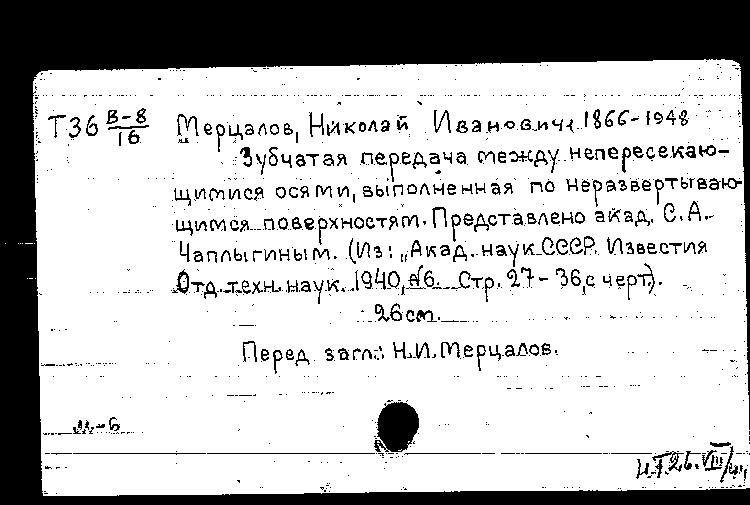 Т36 В-8/16 Мерцалов, Николай Иванович, 1866-1948
Зубчатая передача между непересекаю-
щимися осями, выполненная по неразвертываю-
щимся поверхностям. Представлено акад. С.А.
Чаплыгиным. (Из: „Акад. наук СССР. Известия
Отд. техн. наук. 1940, №6. Стр. 27-36, с черт.).
26 см.
Перед загл.: Н.И. Мерцалов.
м-б
26.VIII